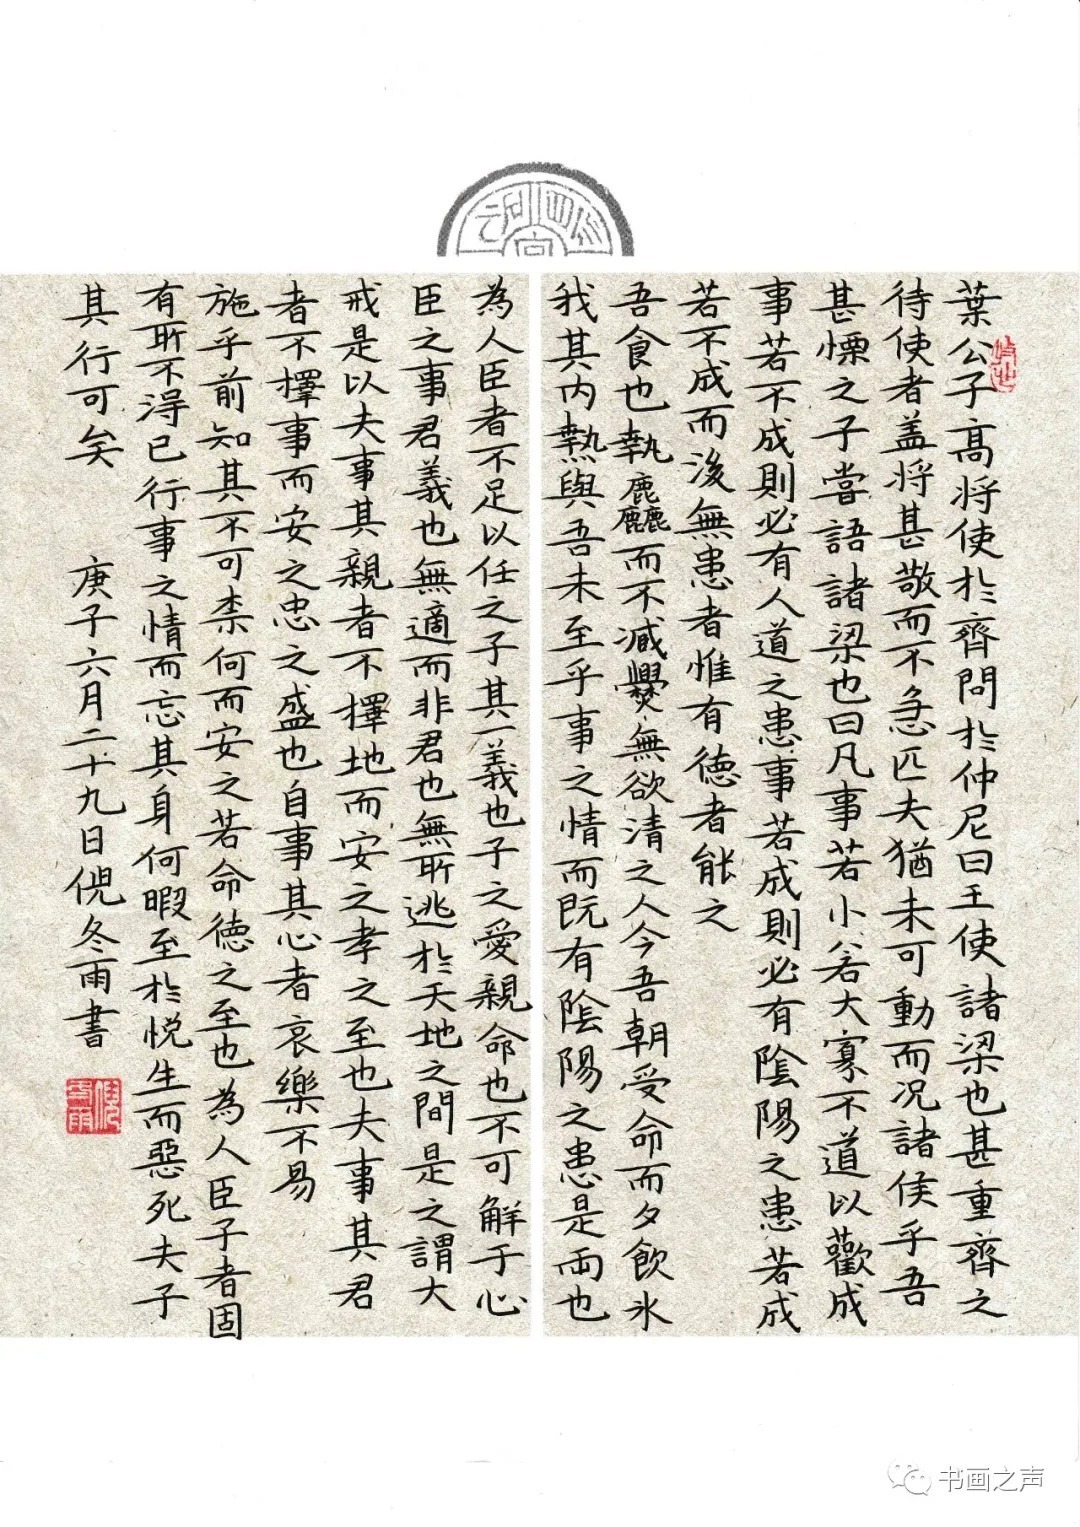 葉公子高将使於齊問於仲尼曰王使諸梁也甚重齊之
待使者盖将甚敬而不急匹夫猶未可動而况諸侯乎吾
甚慄之子嘗語諸梁也曰凡事若小若大寡不道以歡成
事若不成則必有人道之患事若成則必有陰陽之患若成
若不成而後無患者惟有德者能之
吾食也執麤而不减爨無欲清之人今吾朝受命而夕飲氷
我其内熱與吾未至乎事之情而既有陰陽之患是兩也
為人臣者不足以任之子其一義也子之愛親命也不可解于心
臣之事君義也無適而非君也無所逃於天地之間是之謂大
戒是以夫事其親者不擇地而安之孝之至也夫事其君
者不擇事而安之忠之盛也自事其心者哀樂不易
施乎前知其不可柰何而安之若命德之至也為人臣子者固
有所不得已行事之情而忘其身何暇至於悦生而惡死夫子
其行可矣 庚子六月二十九日倪冬雨書
倪冬雨
书画之声